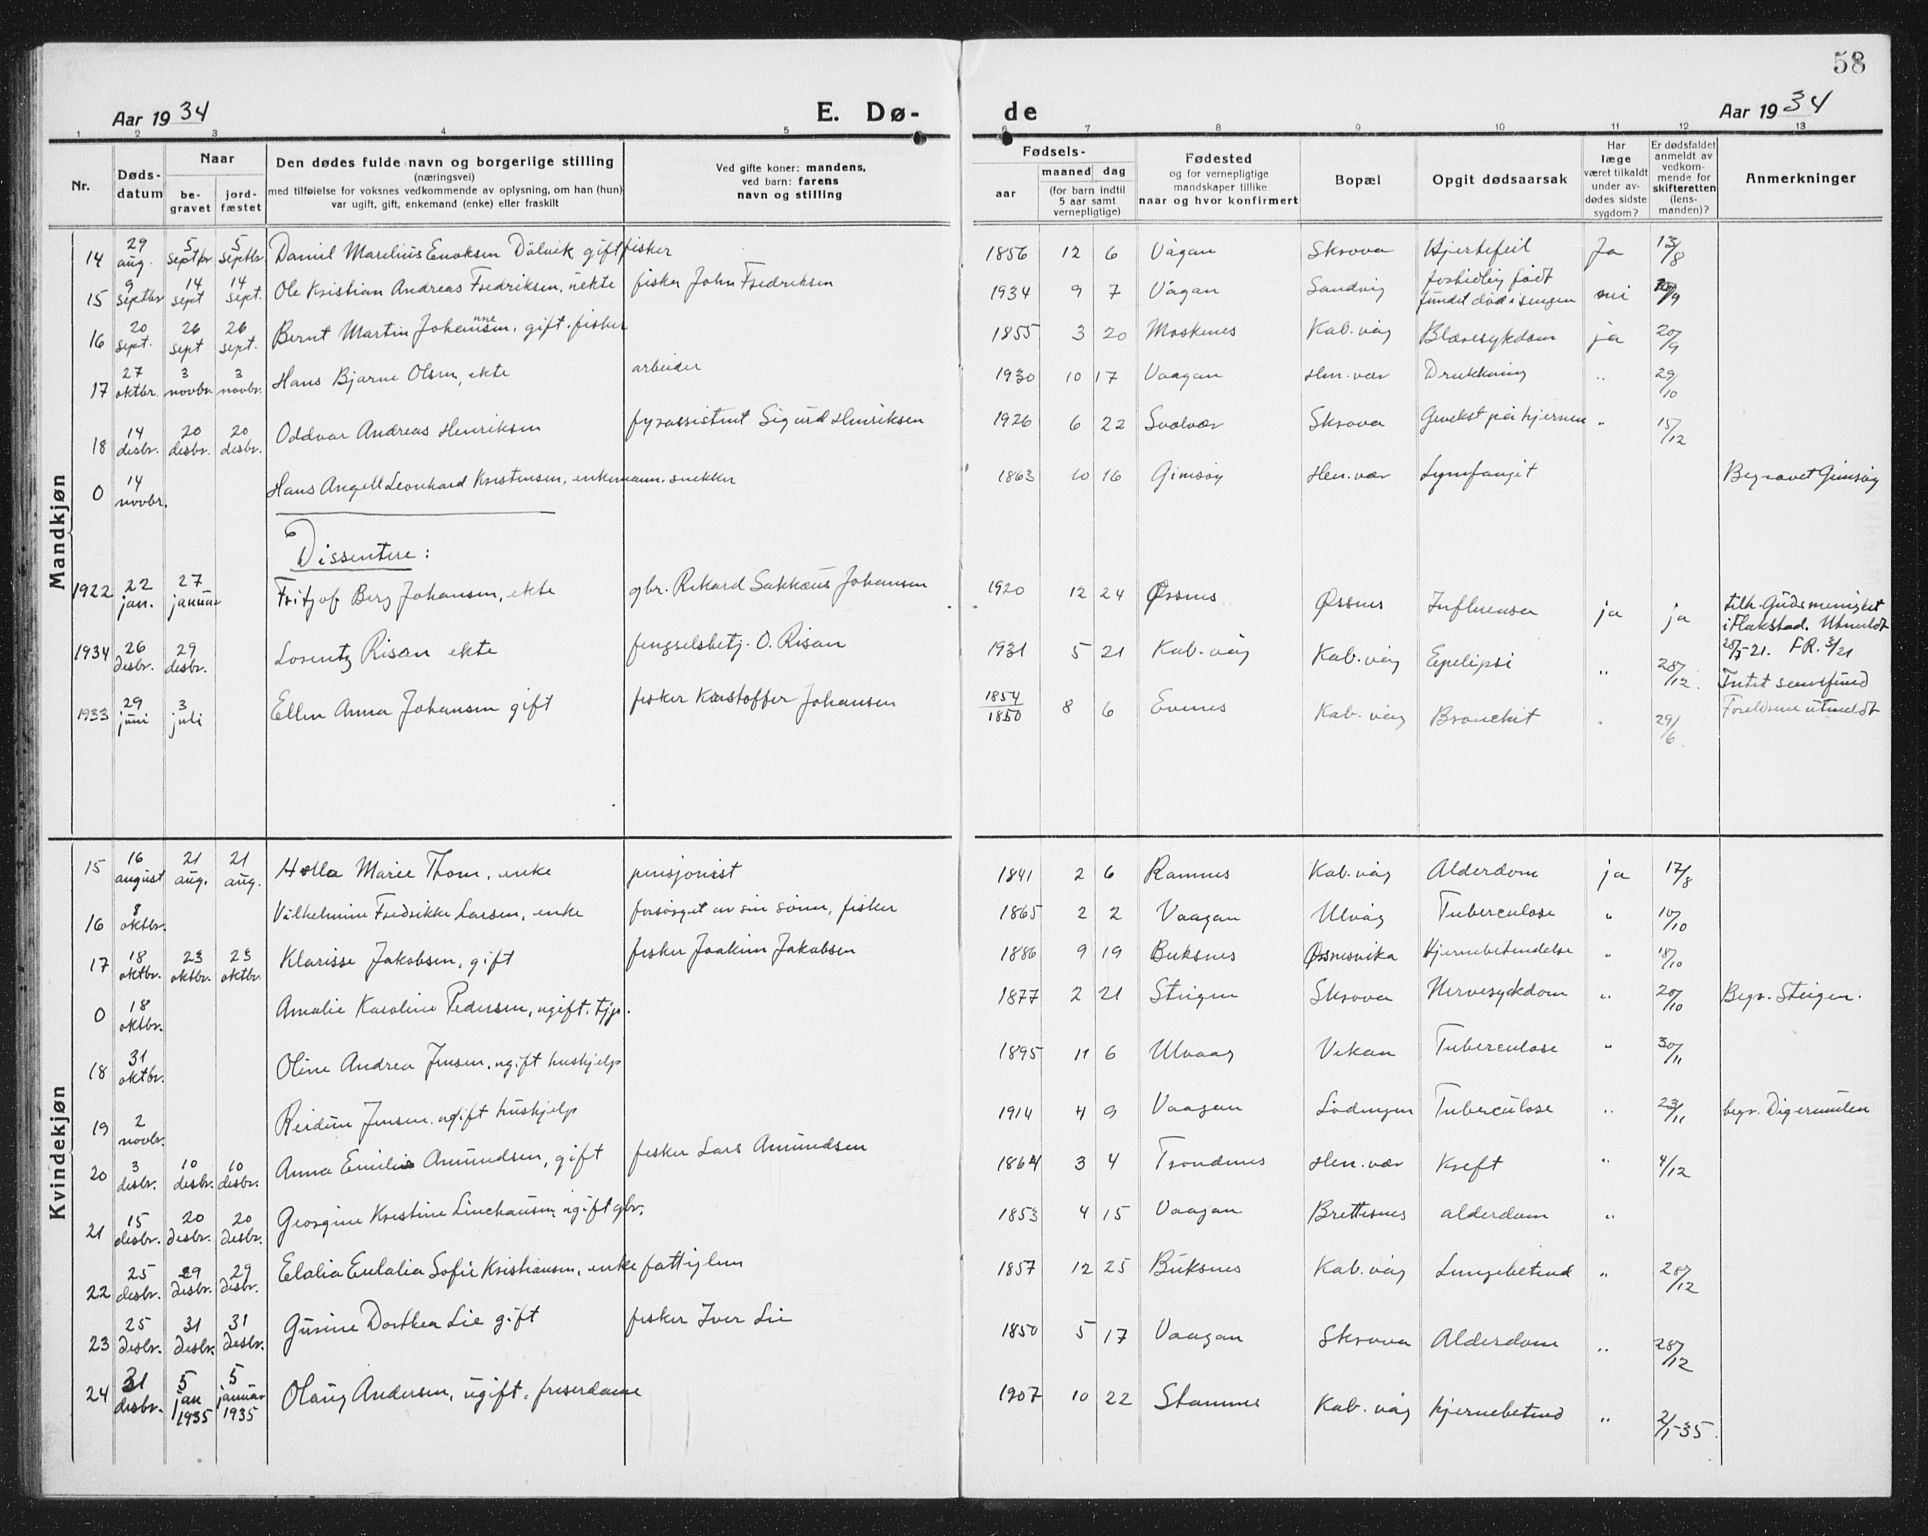 58
Aar 1934 E. Dø- de Aar 1934
1 2 3 4 5 6 7 8 9 10 11 12 13
Nr. Dødsdatum Naar begravet jordfæstet
Den dødes fulde navn og borgerlige stilling
(næringsvei)
med tilføielse for voksnes vedkommende av oplysning, om han (hun)
var ugift, gift, enkemand (enke) eller fraskilt
Ved gifte koner: mandens,
ved barn: farens
navn og stilling
Fødsels-
aar maaned dag
(for barn indtil
5 aar samt
vernepligtige)
Fødested
og for vernepligtige
mandskaper tillike
naar og hvor konfirmert
Bopæl
Opgit dødsaarsak
Har
læge
været tilkaldt
under avdødes sidste
sygdom?
Er dødsfaldet
anmeldt av
vedkommende for
skifteretten
(lensmanden)?
Anmerkninger
Mandkjøn
14 29 aug. 5 septbr 5 septbr. Daniel Marelius Enoksen Dålvik gift fisker 1856 12 6 Vågan Skrova Hjertefeil Ja 13/8
15 9 septbr 14 sept 14 sept. Ole Kristian Andreas Fredriksen, uekte fisker John Fredriksen 1934 9 7 Vågan Sandvig fortidlig født fundet død i sengen nei
16 20 sept. 26 sept 26 sept. Bernt Martin Johannesen, gift. fisker 1855 3 20 Moskenes Kab. våg Blæresykdom ja 20/9
17 27 oktbr. 3 novbr. 3 novbr. Hans Bjarne Olsen, ekte arbeider 1930 10 17 Vaagan Hen. vær Drukkning " 29/10
18 14 desbr. 20 desbr. 20 desbr. Oddvar Andreas Henriksen fyrassistent Sigurd Henriksen 1926 6 22 Svolvær Skrova Gevekst på hjernen " 15/12
0 14 novbr. Hans Angell Leonhard Kristensen, enkemann. snekker 1863 10 16 Gimsøy Hen. vær Lymfangit Begravet Gimsøy
Dissentere:
1922 22 jan. 27 januar Fritjof Berg Johansen, ekte gbr. Rikard Sakkæus Johansen 1920 12 24 Ørsnes Ørsnes Influensa ja ja tilh. Guds menighet i Flakstad. Utmeldt
1934 26 desbr. 29 desbr. Lorentz Risan ekte fengselsbetj. O. Risan 1931 5 21 Kab. våg Kab. våg Epelipsi " 28/12. 28/5-21. FR. 3/21
1933 29 juni 3 juli Ellen Anna Johansen gift fisker Kristoffer Johansen 1854/1850 8 6 Evenes Kab. våg Bronchit " 29/6. Intet samfund Foreldrene utmeldt
Kvindekjøn
15 16 august 21 aug. 21 aug. Holla Marie Thom, enke pensjonist 1841 2 6 Ramnes Kab. våg Alderdom ja 17/8
16 8 oktbr. Vilhelmine Fredrikke Larsen, enke forsørget av sin sønn, fisker 1865 2 2 Vaagan Ulvåg Tuberculose " 10/10
17 18 oktbr. 23 oktbr. 23 oktbr. Klarisse Jakobsen, gift fisker Joakim Jakobsen 1886 9 19 Buksnes Ørsnesvika Hjernebetendelse " 18/10
0 18 oktbr. Amalie Karoline Pedersen, ugift. tjp. 1877 2 21 Steigen Skrova Nervesykdom " 20/10 Begr. Steigen.
18 31 oktbr. Oline Andrea Jensen. ugift hushjelp 1895 11 6 Ulvaag Vikan Tuberculose " 30/11
19 2 novbr. Reidun Jensen. ugift hushjelp 1914 4 9 Vaagan Lødingen Tuberculose " 23/11 begr. Digermulen
20 3 desbr. 10 desbr. 10 desbr. Anna Emilie Amundsen, gift fisker Lars Amundsen 1864 3 4 Trondenes Hen. vær Kreft " 4/12
21 15 desbr. 20 desbr. 20 desbr. Georgine Kristine Linchausen, ugift gbr. 1853 4 15 Vaagan Brettesnes alderdom "
22 25 desbr. 29 desbr. 29 desbr. Elalia Eulalia Sofie Kristiansen, enke fattiglem 1857 12 25 Buksnes Kab. våg Lungebetend " 28/12
23 25 desbr. 31 desbr. 31 desbr. Gurine Dorthea Lie gift fisker Iver Lie 1850 5 17 Vaagan Skrova Alderdom " 28/12
24 31 desbr. 5 jan 1935 5 januar 1935 Olaug Andersen, ugift. friserdame 1907 10 22 Stamnes Kab. våg hjernebetend " 2/1-35.